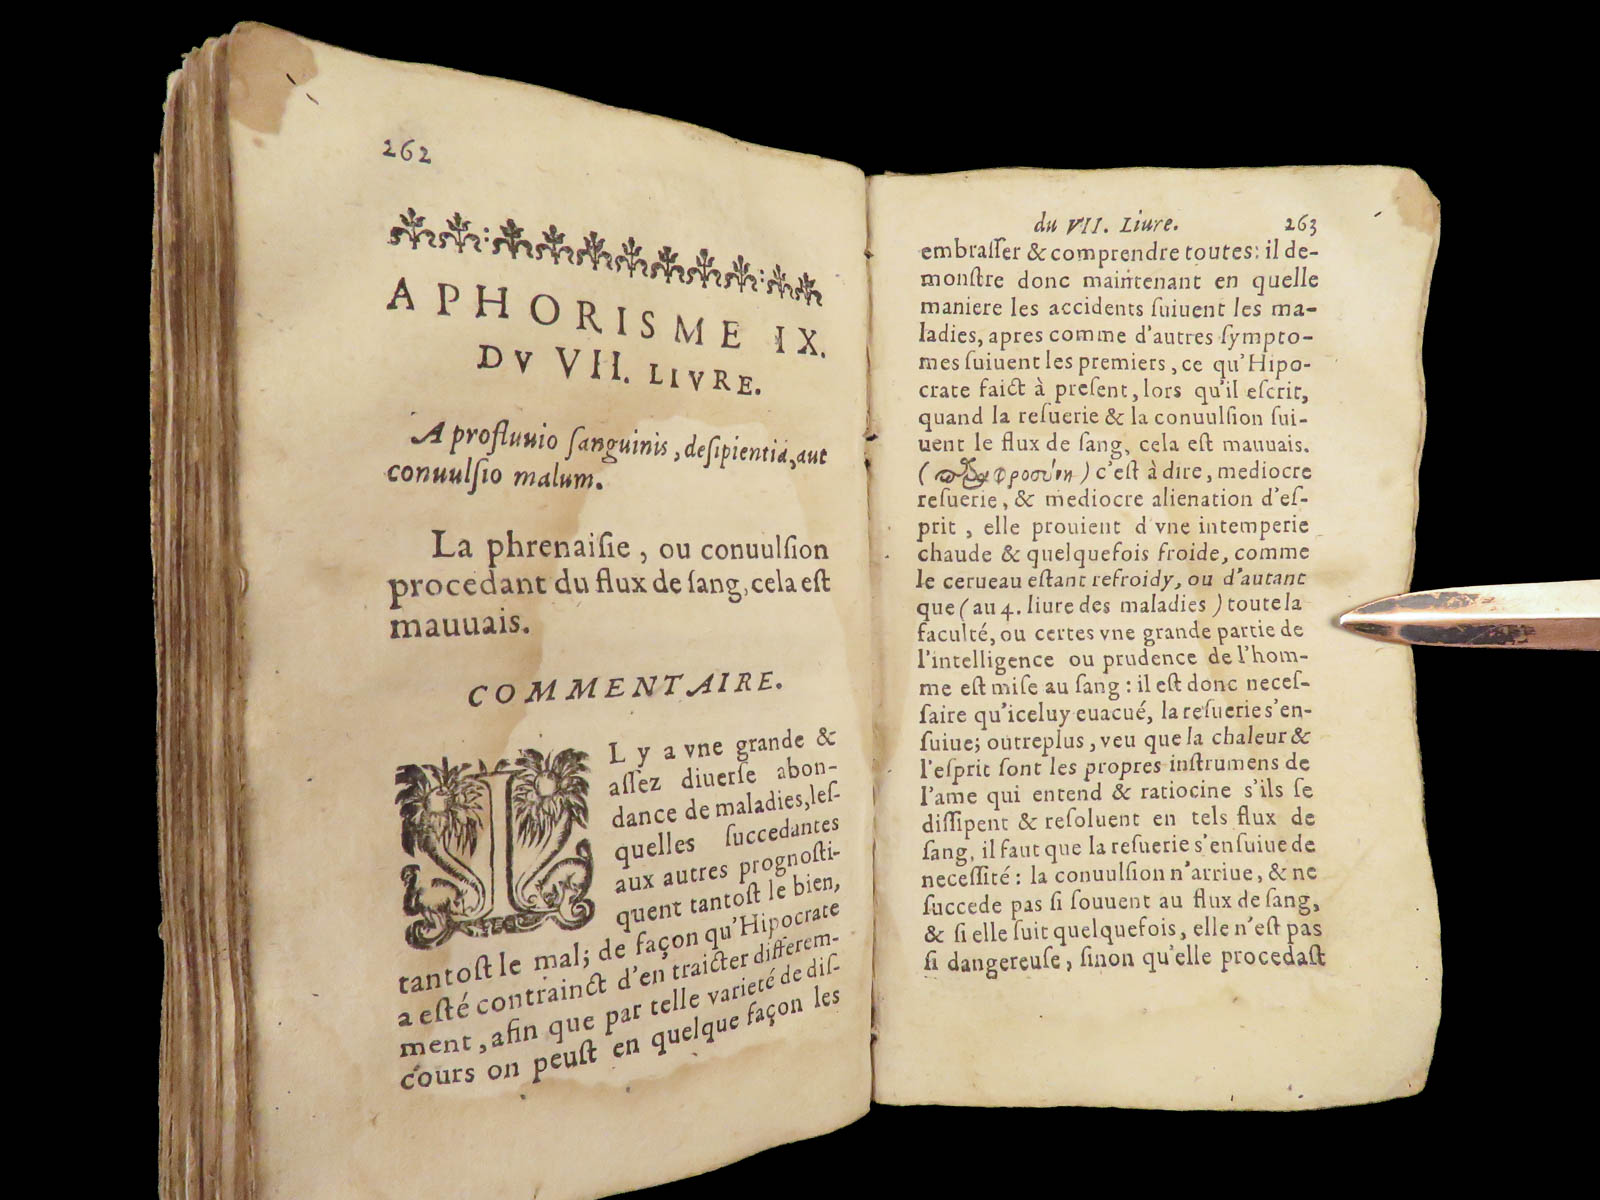 262
APHORISME IX.
DV VII. LIVRE.
A profluuio ſanguinis, deſipientia, aut
conuulſio malum.
La phrenaiſie, ou conuulſion
procedant du flux de ſang, cela eſt
mauuais.
COMMENTAIRE.
IL y a vne grande &
aſſez diuerſe abon-
dance de maladies, leſ-
quelles ſuccedantes
aux autres prognoſti-
quent tantoſt le bien,
tantoſt le mal; de façon qu'Hipocrate
a eſté contrainct d'en traicter differem-
ment, afin que par telle varieté de diſ-
cours on peuſt en quelque façon les
du VII. Liure. 263
embraſſer & comprendre toutes: il de-
monſtre donc maintenant en quelle
maniere les accidents ſuiuent les ma-
ladies, apres comme d'autres ſympto-
mes ſuiuent les premiers, ce qu'Hipo-
crate faict à preſent, lors qu'il eſcrit,
quand la reſuerie & la conuulſion ſui-
uent le flux de ſang, cela eſt mauuais.
(παραφροσύνη) c'eſt à dire, mediocre
reſuerie, & mediocre alienation d'eſ-
prit, elle prouient d vne intemperie
chaude & quelquefois froide, comme
le cerueau eſtant refroidy, ou d'autant
que (au 4. liure des maladies) toute la
faculté, ou certes vne grande partie de
l'intelligence ou prudence de l'hom-
me eſt miſe au ſang: il eſt donc neceſ-
ſaire qu'iceluy euacué, la reſuerie s'en-
ſuiue; outreplus, veu que la chaleur &
l'eſprit ſont les propres inſtrumens de
l'ame qui entend & ratiocine s'ils ſe
diſſipent & reſoluent en tels flux de
ſang, il faut que la reſuerie s'enſuiue de
neceſſité: la conuulſion n'arriue, & ne
ſuccede pas ſi ſouuent au flux de ſang,
& ſi elle ſuit quelquefois, elle n'eſt pas
ſi dangereuſe, ſinon qu'elle procedaſt